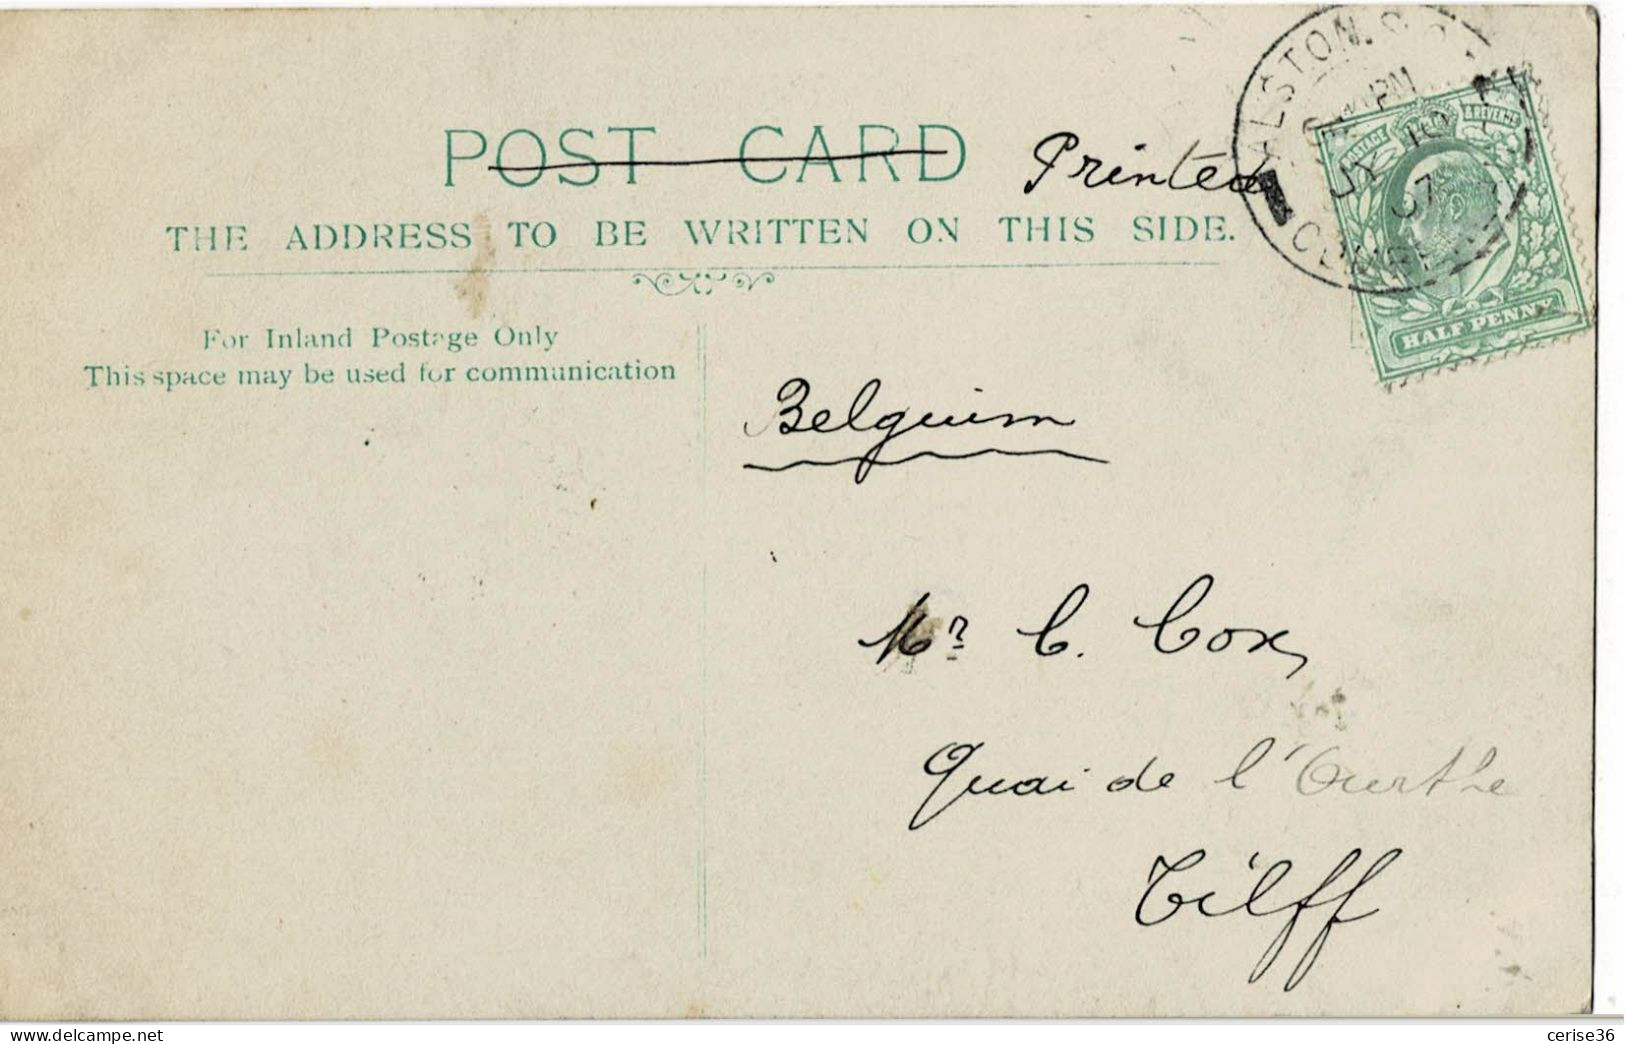 POST CARD
Printed
THE ADDRESS TO BE WRITTEN ON THIS SIDE.
For Inland Postage Only
This space may be used for communication
ALSTON.S.O.
PM
JY 10
07
POSTAGE & REVENUE
HALF PENNY
Belguim
Mr C. Cox,
Quai de l'Ourthe
Tilff
www.delcampe.net
cerise36